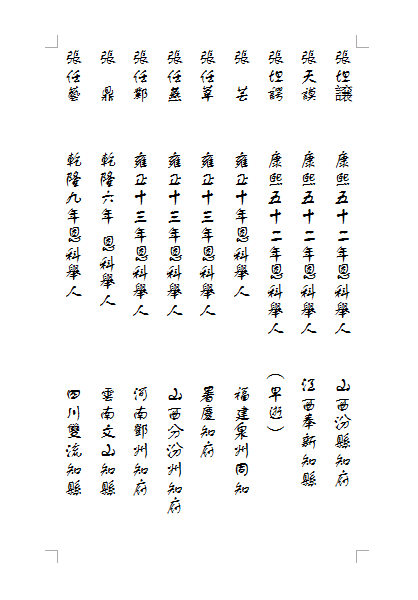 張坦讓 康熙五十二年恩科舉人 山西汾縣知府
張天謨 康熙五十二年恩科舉人 江西奉新知縣
張坦諤 康熙五十二年恩科舉人 （早逝）
張 雍正十年恩科舉人 福建泉州同知
張任 雍正十三年恩科舉人 署慶知府
張任 雍正十三年恩科舉人 山西分汾州知府
張任 雍正十三年恩科舉人 河南鄧州知府
張 鼎 乾隆六年 恩科舉人 雲南文山知縣
張任藝 乾隆九年恩科舉人 四川雙流知縣